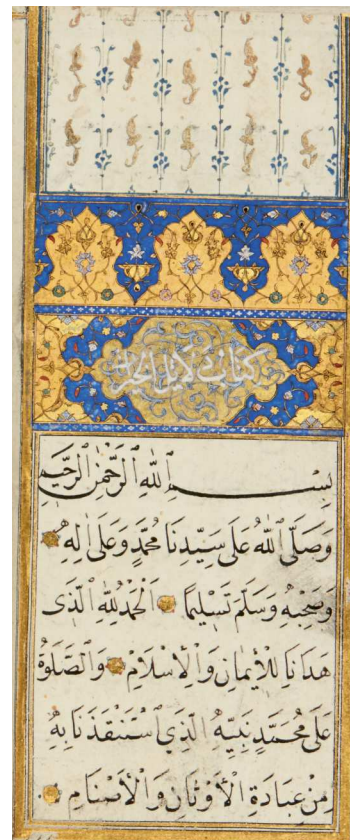 كتاب دلايل الخيرات
بِسْمِ اللّٰهِ الرَّحْمٰنِ الرَّحِيمِ
وَصَلَّى اللّٰهُ عَلَى سَيِّدِنَا مُحَمَّدٍ وَعَلَى اٰلِهِ
وَصَحْبِهِ وَسَلَّمَ تَسْلِيمًا اَلْحَمْدُ لِلّٰهِ الَّذِى
هَدٰنَا لِلْاِيمَانِ وَالْاِسْلَامِ وَالصَّلٰوةُ
عَلَى مُحَمَّدٍ نَبِيِّهِ الَّذِي اسْتَنْقَذَنَا بِهِ
مِنْ عِبَادَةِ الْاَوْثَانِ وَالْاَصْنَامِ